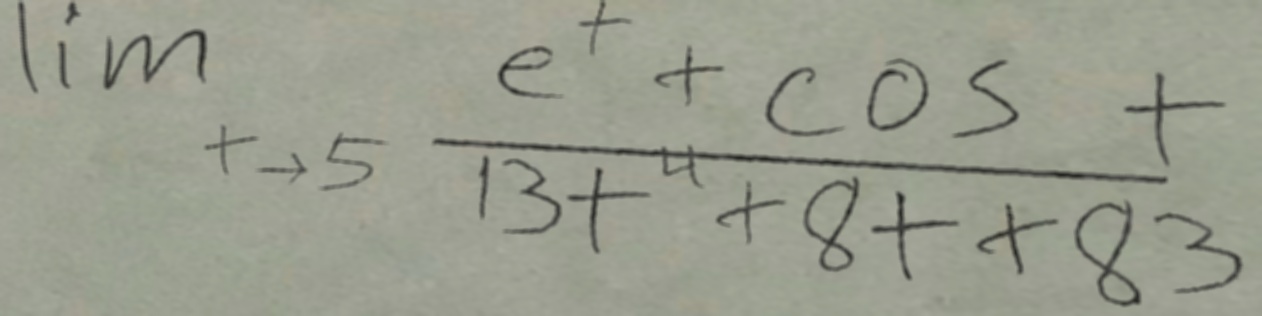 lim t→5 (e^t + cos t) / (13t^4 + 8t + 83)